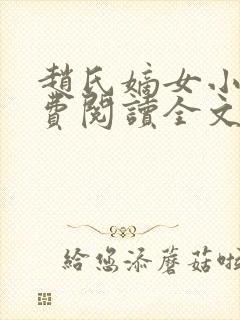 趙氏嫡女小
費閱讀全文
給您添蘑菇啦